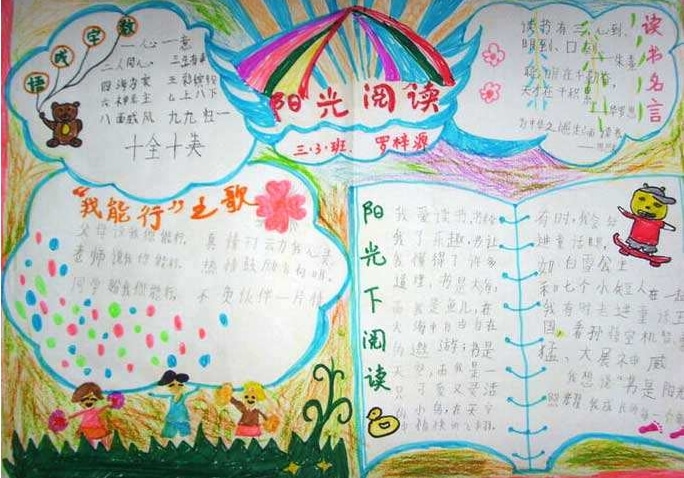 数字成语
一心一意
二人同心 三生有幸
四海为家
六神无主 七上八下
八面威风 九九归一
十全十美
阳光阅读
三.3.班. 罗梓源
读书名言
读书有三心到、
眼到、口到
——朱熹
聪明在于勤奋，
天才在于积累
——华罗庚
为中华之崛起而读书
“我能行”之歌
父母说我你能行， 真情可
老师说我你能行， 热情鼓励
同学 我你能行， 不负伙伴一片情
阳光下阅读
我爱读书,书给
我了乐趣,书让
我懂得了许多
道理,书是大海,
而我是鱼儿,在
大海中自由自在
的遨游;书是
天空,而我是一
只可爱又灵活
的小鸟,在天空
中愉快的飞翔.
有时,我会
进童话
如白雪公主
和七个小矮人在一起
我有时走进童话王
国,看孙悟空机智、勇
猛、大展神威
我想说“书是阳光
照耀我成长的每一个